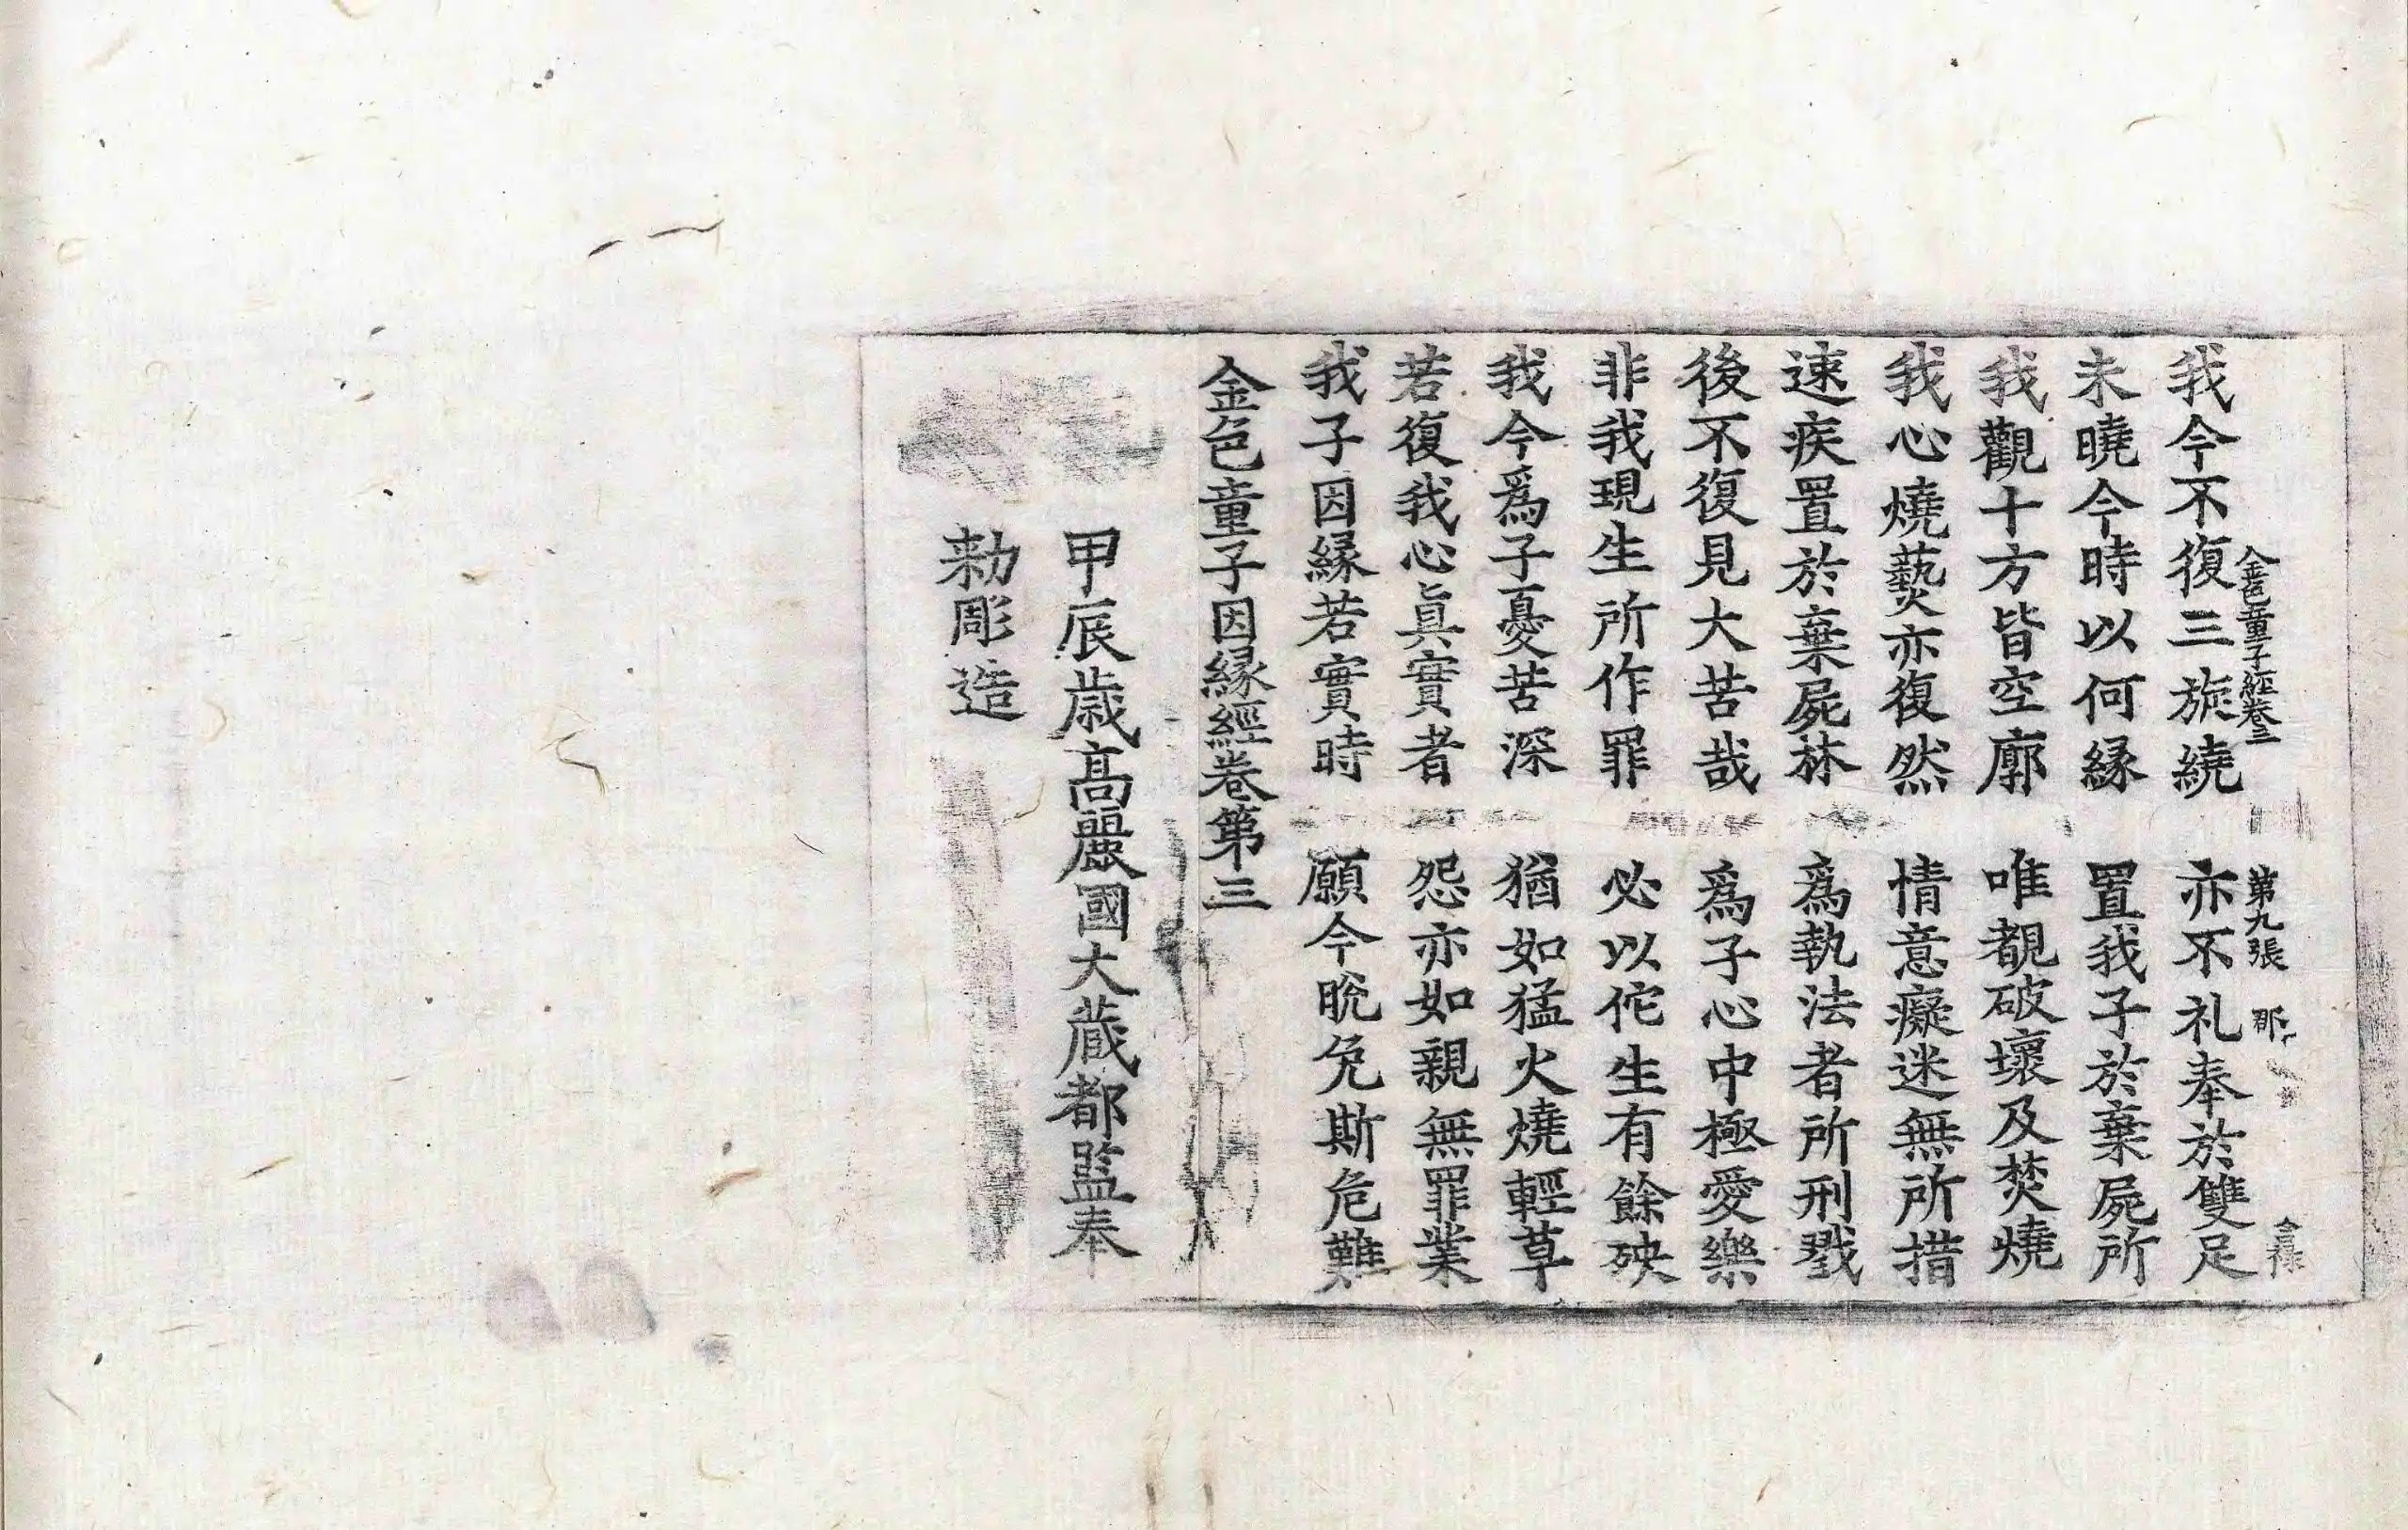 金色童子經卷三　第九張　那
我今不復三旋繞　亦不礼奉於雙足
未曉今時以何縁　置我子於棄屍所
我觀十方皆空廓　唯覩破壞及焚燒
我心燒爇亦復然　情意癡迷無所措
速疾置於棄屍林　爲執法者所刑戮
後不復見大苦哉　爲子心中極愛樂
非我現生所作罪　必以佗生有餘殃
我今爲子憂苦深　猶如猛火燒輕草
若復我心眞實者　怨亦如親無罪業
我子因縁若實時　願今脫免斯危難
金色童子因縁經卷第三
甲辰歳髙麗國大蔵都監奉
勑彫造